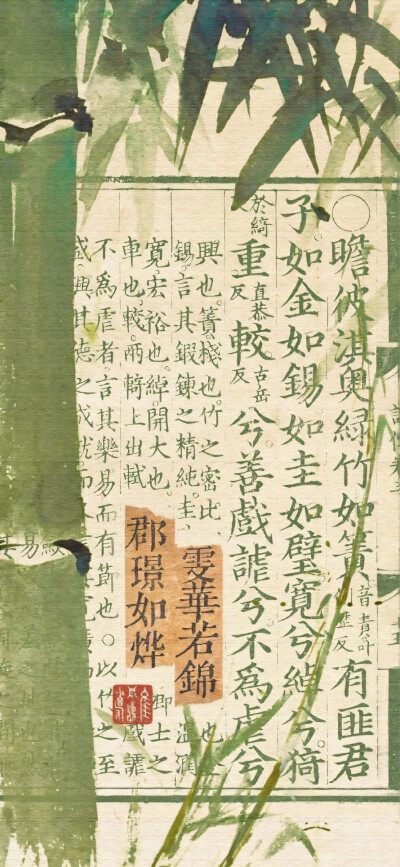 ○瞻彼淇奧綠竹如簀音責叶反有匪君
子如金如錫如圭如璧寬兮綽兮猗
於綺反重直恭反較古岳反兮善戲謔兮不為虐兮
興也簀棧也竹之密比
也金
錫言其鍛鍊之精純圭
溫潤
寬宏裕也綽開大也
卿士之
車也較兩輢上出軾
戲謔
不為虐者言其樂易而有節也○以竹之至
盛興其德之成就而
雯華若錦
郡璟如烨